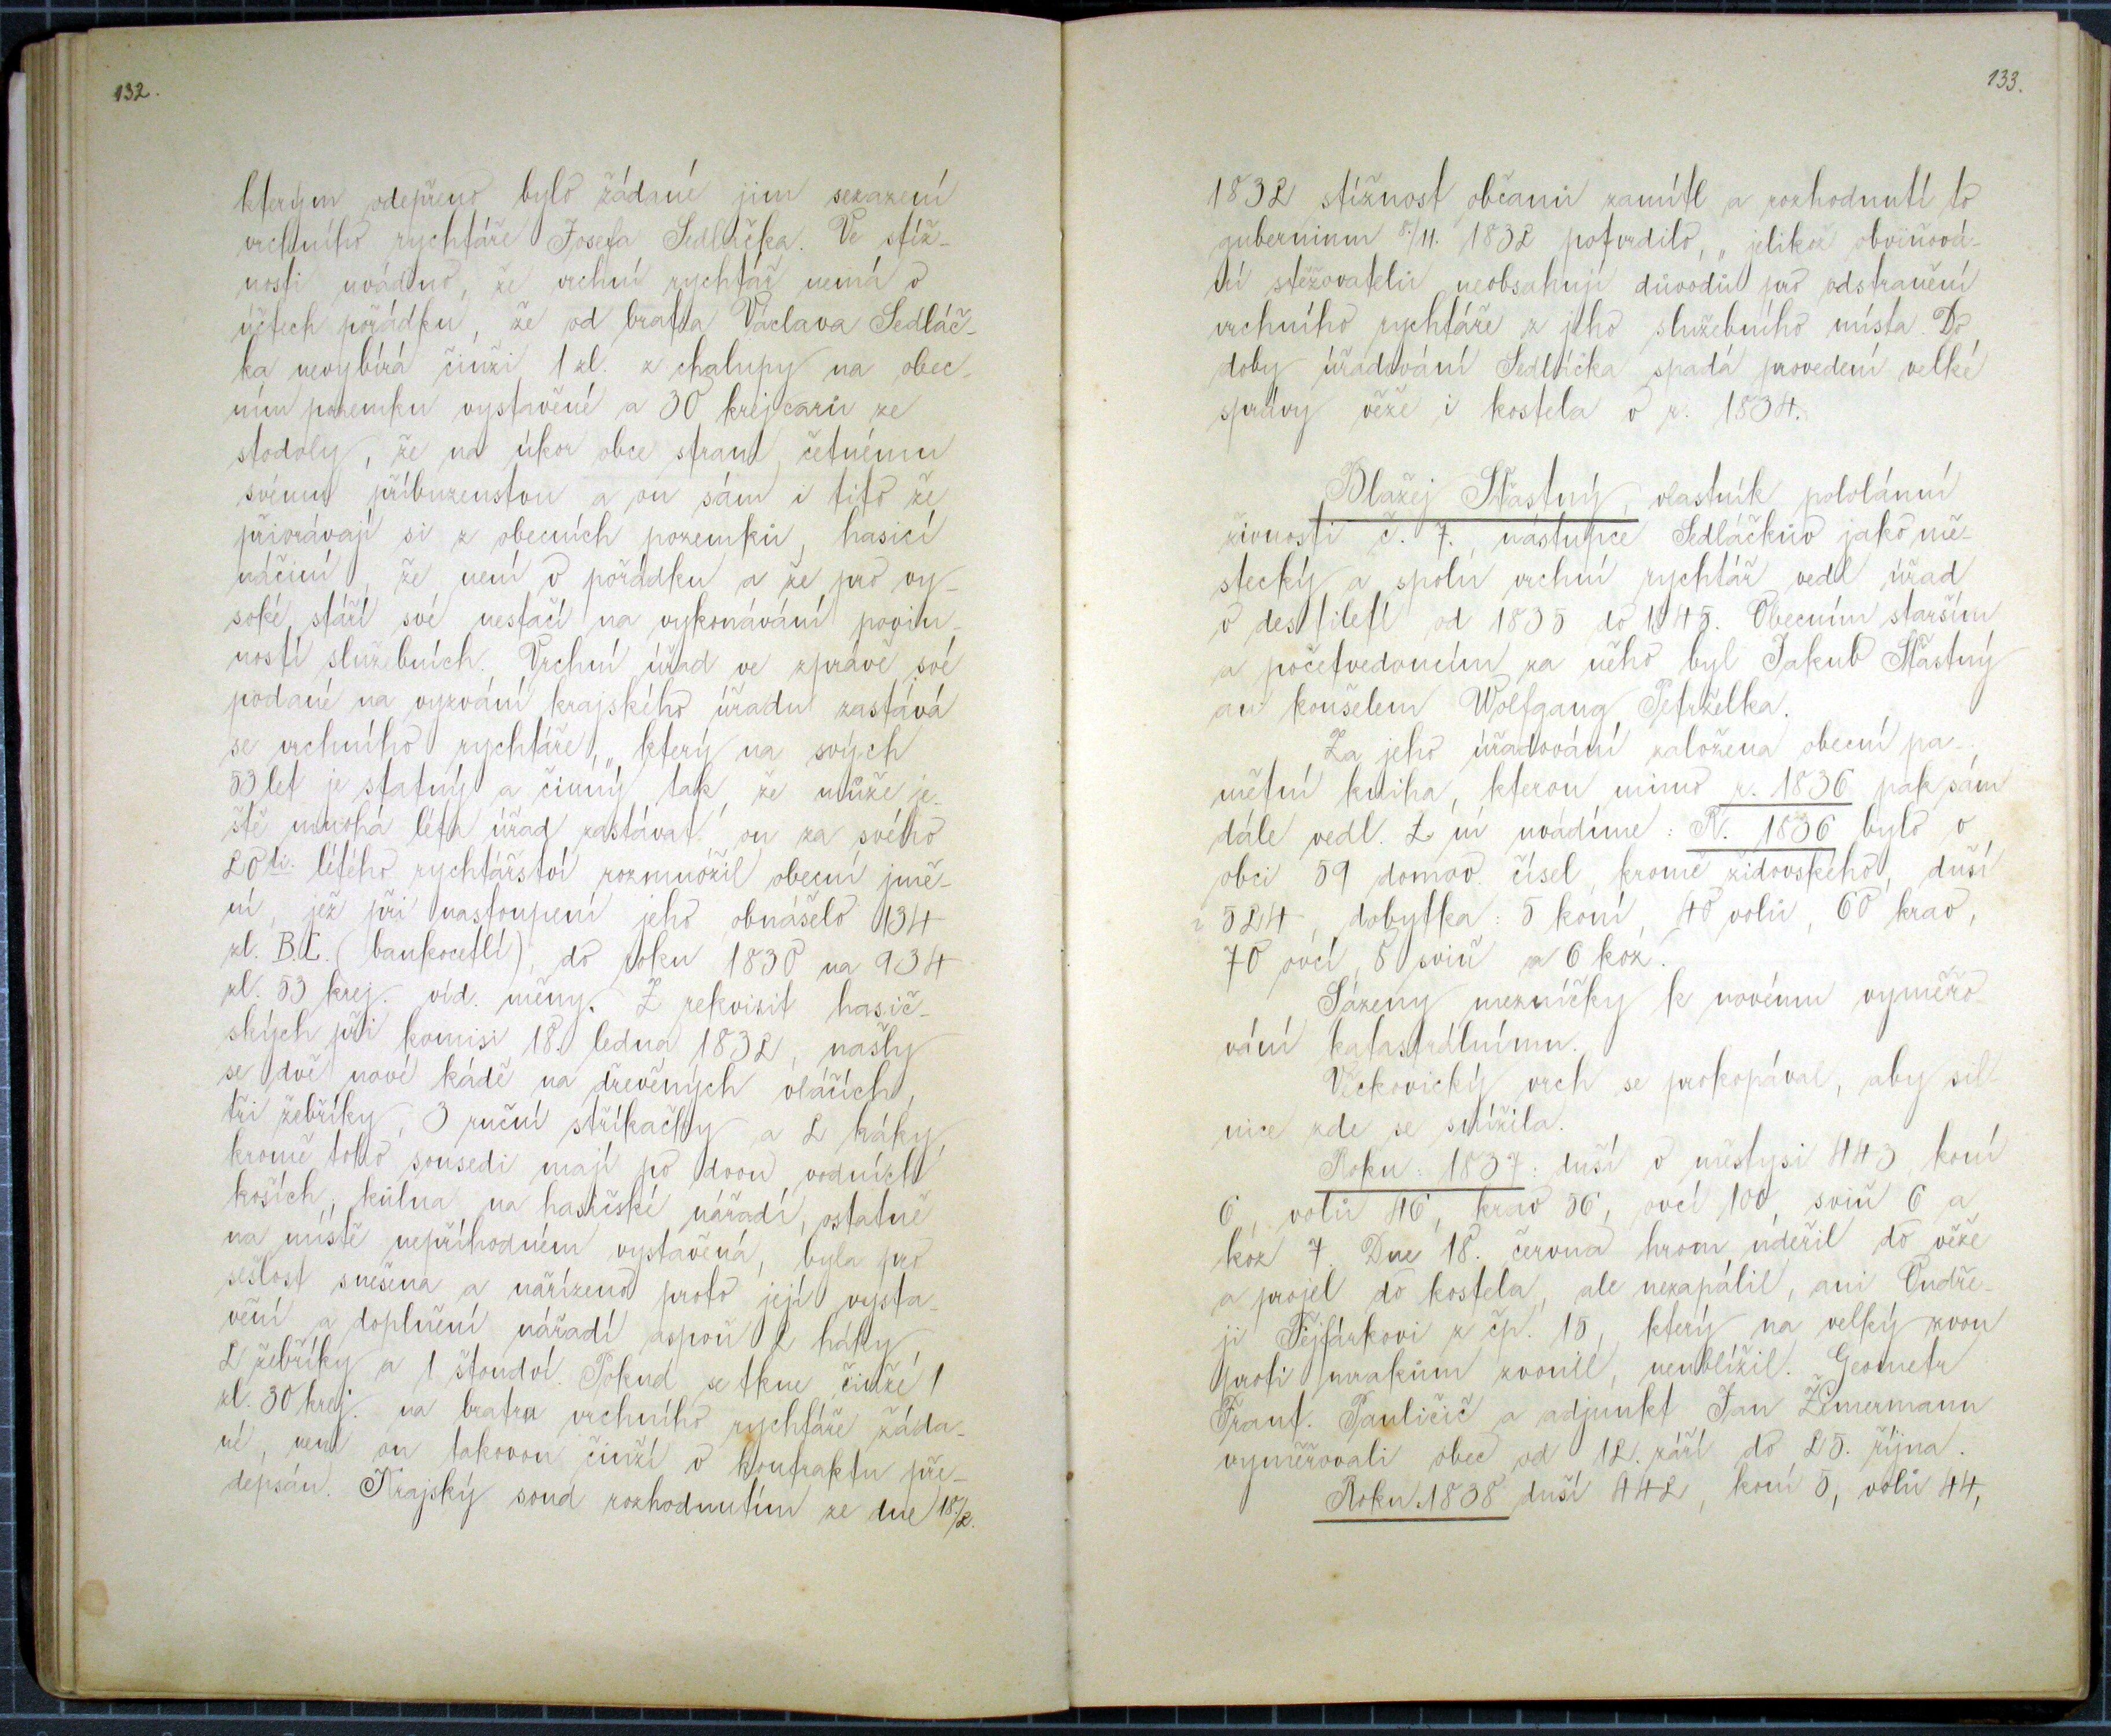 132.
kterým odepřeno bylo žádané jim sesazení
vrchního rychtáře Josefa Sedláčka. Ve stíž-
nosti uváděno, že vrchní rychtář nemá v
účtech pořádku, že od bratra Václava Sedláč-
ka nevybírá činži 1 zl. z chalupy na obec-
ním pozemku vystavěné a 30 krejcarů ze
stodoly, že na úkor obce straní četnému
svému příbuzenstvu a on sám i tito že
přiorávají si z obecních pozemků, hasicí
náčiní, že není v pořádku a že pro vy-
soké stáří své nestačí na vykonávání povin-
ností služebních. Vrchní úřad ve zprávě své
podané na vyzvání krajského úřadu zastává
se vrchního rychtáře, „který na svých
53 let je statný a činný tak, že může je-
ště mnohá léta úřad zastávat on za svého
20ti. létého rychtářství rozmnožil obecní jmě-
ní, jež při nastoupení jeho obnášelo 134
zl. B.C. (bankocetlí), do roku 1830 na 934
zl. 53 krej. víd. měny. Z rekvisit hasič-
ských při komisi 18. ledna 1832, našly
se dvě nové kádě na dřevěných vláčích,
tři žebříky, 3 ruční stříkačky a 2 háky,
kromě toho sousedi mají po dvou vodních
koších, kůlna na hasičské nářadí, ostatně
na místě nepříhodném vystavěná, byla pro
sešlost snešena a nařízeno proto její vysta-
vění a doplnění nářadí aspoň 2 háky,
2 žebříky a 1 štoudví. Pokud se tkne činže 1
zl. 30 krej. na bratru vrchního rychtáře žáda-
né, není on takovou činží v kontraktu pře-
depsán. Krajský soud rozhodnutím ze dne 18./2.
133.
1832 stížnost občanů zamítl a rozhodnutí to
gubernium 8./11. 1832 potvrdilo, „jelikož obviňová-
ní stěžovatelů neobsahují důvodů pro odstranění
vrchního rychtáře z jeho služebního místa. Do
doby úřadování Sedláčka spadá provedení velké
správy věže i kostela v r. 1834.
Blažej Šťastný, vlastník pololánní
živnosti č. 7., nástupce Sedláčkův jako mě-
stecký a spolu vrchní rychtář vedl úřad
v desítiletí od 1835 do 1845. Obecním starším
a početvedoucím za něho byl Jakub Šťastný
an konšelem Wolfgang Petrželka.
Za jeho úřadování založena obecní pa-
mětní kniha, kterou mimo r. 1836 pak sám
dále vedl. Z ní uvádíme: R. 1836 bylo v
obci 59 domov. čísel, kromě židovského, duší
524, dobytka: 5 koní, 40 volů, 60 krav,
70 ovcí, 8 sviň a 6 koz.
Sázeny mezníčky k novému vyměřo-
vání katastrálnímu.
Vickovický vrch se prokopával, aby sil-
nice zde se snížila.
Roku: 1837: duší v městysi 443, koní
6, volů 46, krav 56, ovcí 100, sviň 6 a
koz 7. Dne 18. června hrom udeřil do věže
a projel do kostela, ale nezapálil, ani Ondře-
ji Fejfárkovi z čp. 15, který na velký zvon
proti mrakům zvonil, neublížil. Geometr
Frant. Pauličič a adjunkt Jan Zimermann
vyměřovali obec od 12. září do 25. října.
Roku 1838 duší 442, koní 5, volů 44,